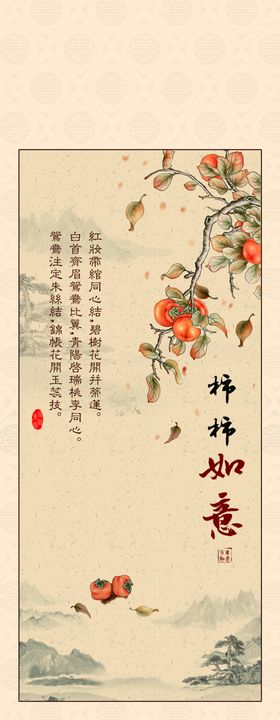 柿柿如意
紅妝帶綰同心結,碧樹花開幷蒂蓮。
白首齊眉鴛鴦比翼,青陽啓瑞桃李同心。
鴛鴦注定朱絲結,錦帳花開玉蕊枝。